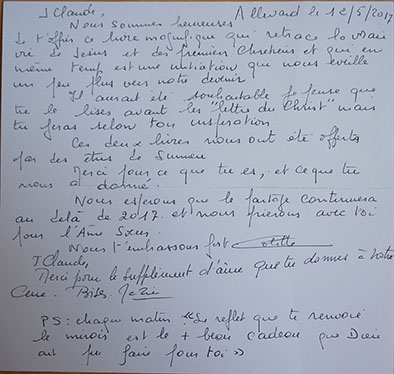 J Claude, Allevard le 12/5/2017
Nous sommes heureuses
de t'offrir ce livre magnifique qui retrace la vraie
vie de Jésus et des premiers Chrétiens et qui en
même temps est une initiation qui nous éveille
un peu plus vers notre devenir
Il aurait été souhaitable je pense que
tu le lises avant les "lettres du Christ" mais
tu feras selon ton inspiration.
Ces deux livres nous ont été offerts
par des êtres de lumière
Merci pour ce que tu es, et ce que tu
nous a donné.
Nous espérons que le partage continuera
au delà de 2017. et nous prierons avec toi
pour l'Ame Sœur.
Nous t'embrassons fort Colette
J Claude,
Merci pour le supplément d'âme que tu donnes à votre
PS : chaque matin : "Le reflet que te renvoie
le miroir est le + beau cadeau que Dieu
ait pu faire pour toi »